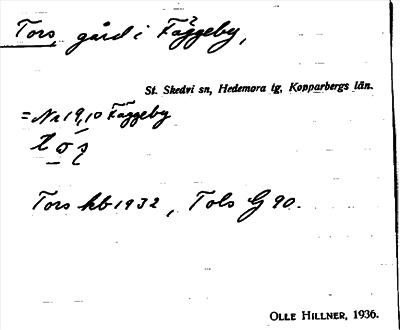 Tors, gård i Fäggeby,
St. Skedvi sn, Hedemora tg, Kopparbergs län.
= Nr 19,10 Fäggeby
Tors hb 1932, Tols G 90.
OLLE HILLNER, 1936.